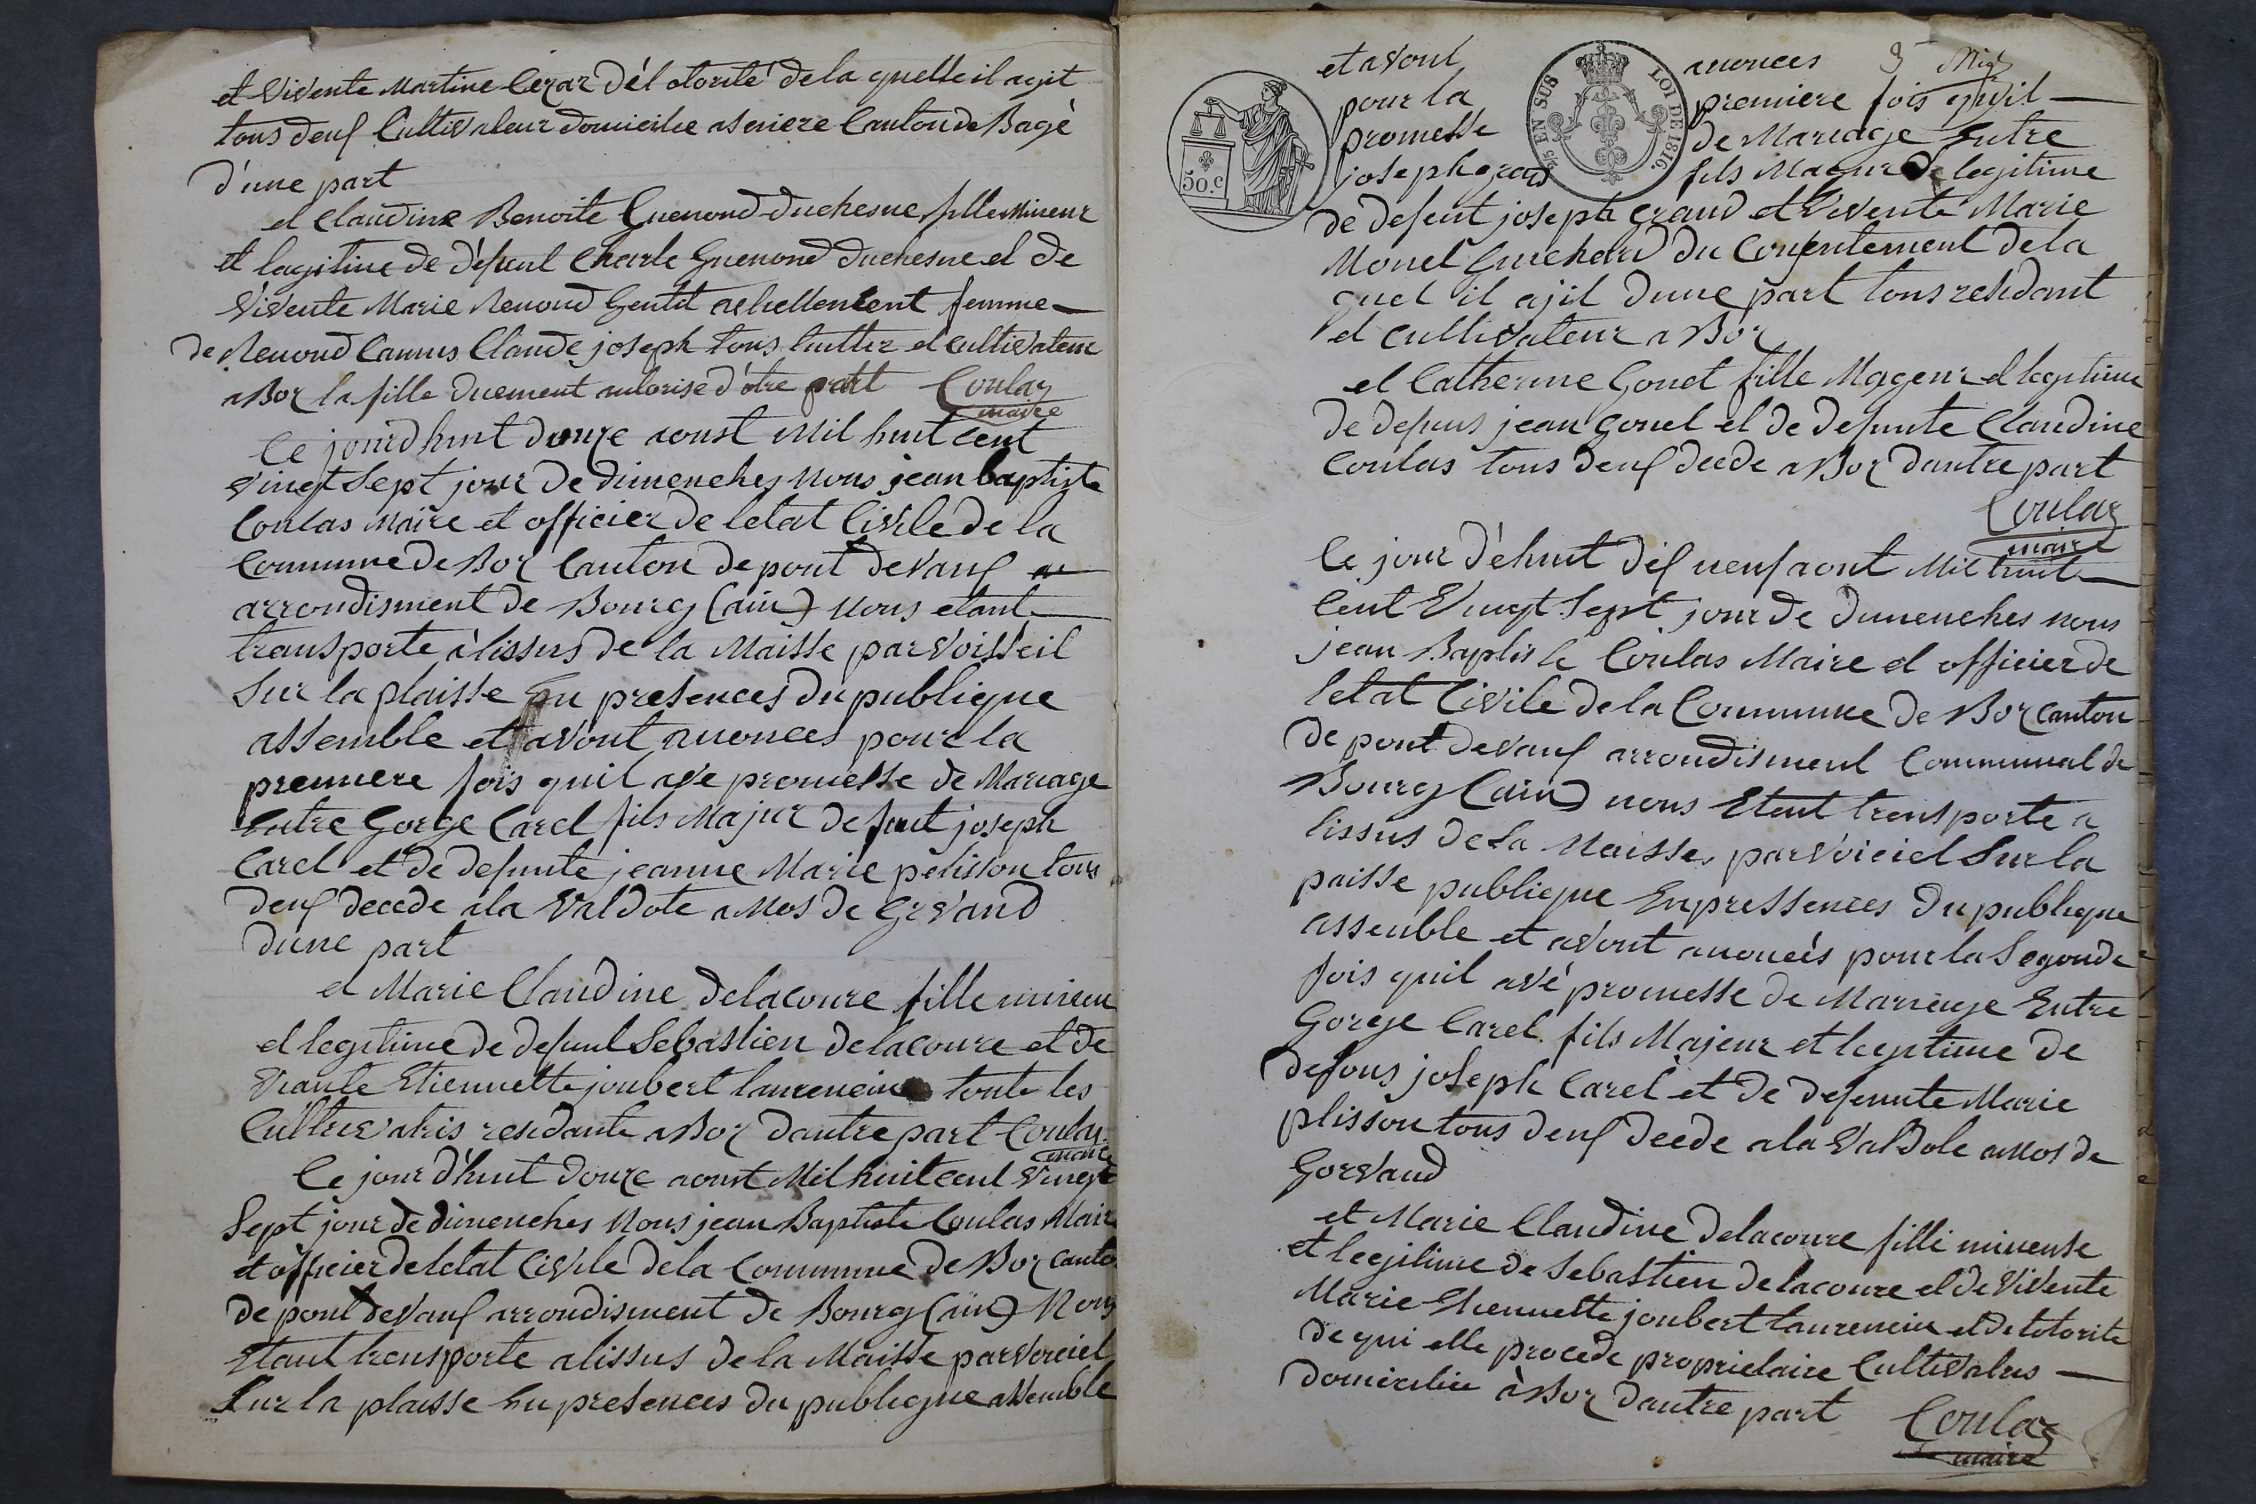 et vivente Martine Cezar dél otorité de la quelle il agit
tous deuf Cultivateur domicilie a seriere Canton de Bagé
d'une part
et Claudine Benoite Guenond duchesne fille mineur
et lagitime de défunt Charle Guenond duchesne et de
vivente Marie Renoud Gentit actuellement femme
de Renoud Camus Claude joseph tous tuttez et cultivateur
a Boz la fille duement autorise d'otre part Coulaz
maire
Ce jourdhuit douze aoust Mil huit Cent
vingt Sept jour de dimenches Nous jean baptiste
Coulas Maire et officier de letat Civile de la
Commune de Boz Canton de pont devauf
arrondisment de Bourg (ain) Nous etant
transporte à lissus de la Maisse par Voisseil
Sur la plaisse En presences du publique
assemble et avont anonces pour la
premiere fois quil ave promesse de Mariage
Entre Gorge Carel fils Majur defeut joseph
Carel et de defunte jeanne Marie pelisson tous
deuf decede a la Valdote a Mos de Grevaud
dune part
et Marie Claudine delacoure fille mineur
et legitime de defunt Sebastien delacoure et de
Etiennette joubert laurencin toute les
Cultivatris residante a Boz dautre part Coulaz
maire
Ce jour d'huit douze aoust Mil huit cent Vingt
Sept jour de dimenches Nous jean Baptiste Coulas Maire
et officier de letat Civile de la Commune de Boz Canto
de pont devauf arrondisment de Bourg (ain) Nous
Etant trensporte a lissus de la Maisse par voiciel
Sur la plaisse En presences du publicque assemble
et avont anonces
pour la premiere fois quil
promesse de Mariage Entre
joseph graud fils Majeur & legitime
50.c
5/5 EN SUS LOI DE 1816.
de defeut joseph graud et Vivente Marie
Monel Guichard du Consentement de la
quel il ajit dune part tous residant
et cultivateur a Boz
et Catherine Gonet fille Mageur et legitime
de defeus jean Gonel et de defunte Claudine
Coulas tous deuf decde a Boz dautre part
Coulaz
maire
Ce jour d'éhuit déf neuf aout Mil huit
Cent Vingt Sept jour de dimenches nous
jean Baptiste Coulas Maire et officier de
letat Civile de la Commune de Boz canton
de pont devauf arrondisment Communal de
Bourg (ain) nous Etant trensporte a
lissus de la Maisse par voiciel Sur la
paisse publieque En pressences du publieque
assemble et avont anoncés pour la Segonde
fois quil avé promesse de Marriage Entre
Gorge Carel fils Majeur et legitime de
defous joseph Carel et de defeunte Marie
plisson tous deuf decde a la Valdole a Mos de
Gorvaud
et Marie Claudine delacoure fille mineuse
et legitime de Sebastien delacoure et de Vivente
Marie Etiennette joubert laurencin et de lotorite
de qui elle procede proprietaire Cultivatris
domicilie à Boz dautre part
Coulaz
maire